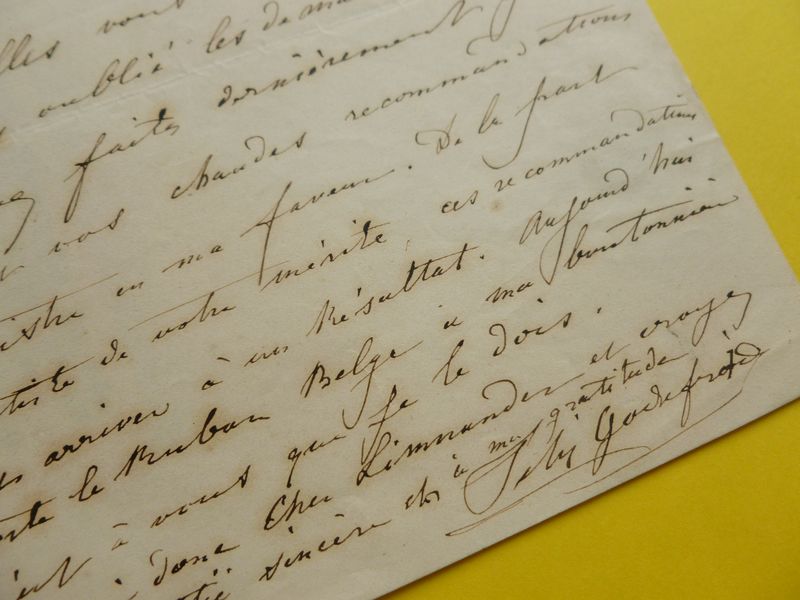 vous
oublié les
faites dernièrement
vos chaudes recommandations
en ma faveur. De la part
de votre mérite, ces recommandations
arriver à un Résultat. Aujourd'hui
le Ruban Belge à ma boutonnière
à vous que je le dois.
donc Cher Limnander et croyez
sincère et à ma gratitude
Godefroid